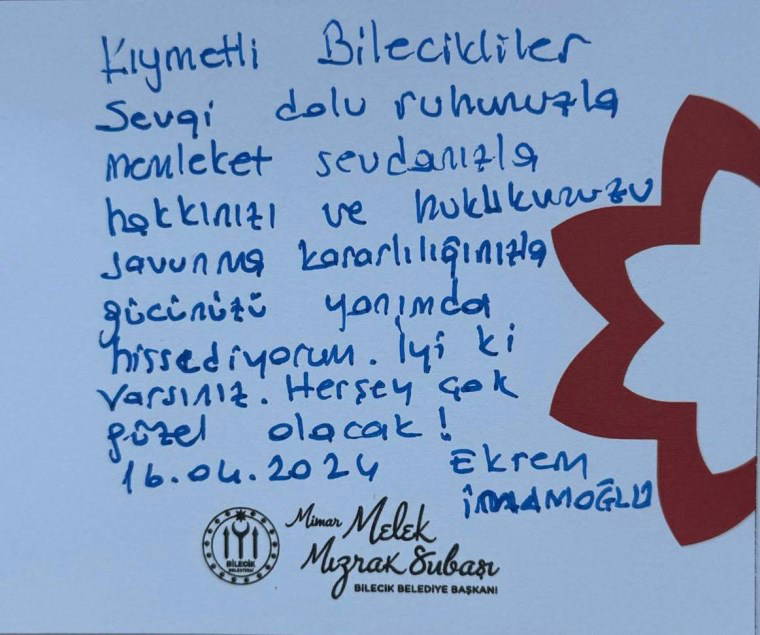 Kıymetli Bilecikliler
Sevgi dolu ruhunuzla
memleket sevdanızla
hakkınızı ve hukukunuzu
savunma kararlılığınızla
gücünüzü yanımda
hissediyorum. İyi ki
varsınız. Herşey çok
güzel olacak!
16.04.2024 Ekrem
İMAMOĞLU
BİLECİK
BELEDİYESİ
Mimar Melek
Mızrak Subaşı
BİLECİK BELEDİYE BAŞKANI